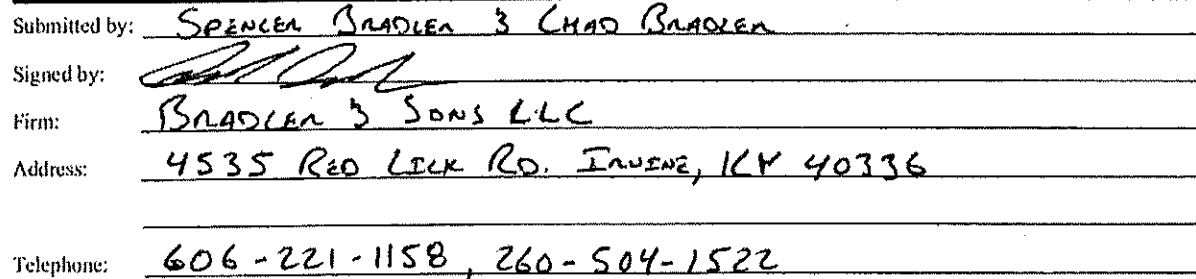 Submitted by: SPENCER BRADLER & CHAD BRADLER
Signed by:
Firm: BRADLER & SONS LLC
Address: 4535 RED LICK RD. IRVINE, KY 40336
Telephone: 606-221-1158, 260-504-1522